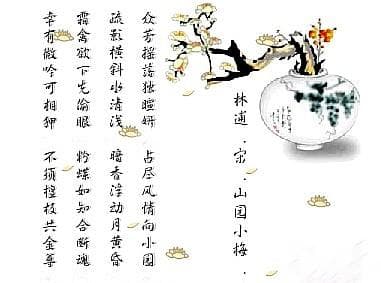 林逋.宋.山园小梅.
众芳摇落独暄妍 占尽风情向小园
疏影横斜水清浅 暗香浮动月黄昏
霜禽欲下先偷眼 粉蝶如知合断魂
幸有微吟可相狎 不须檀板共金尊